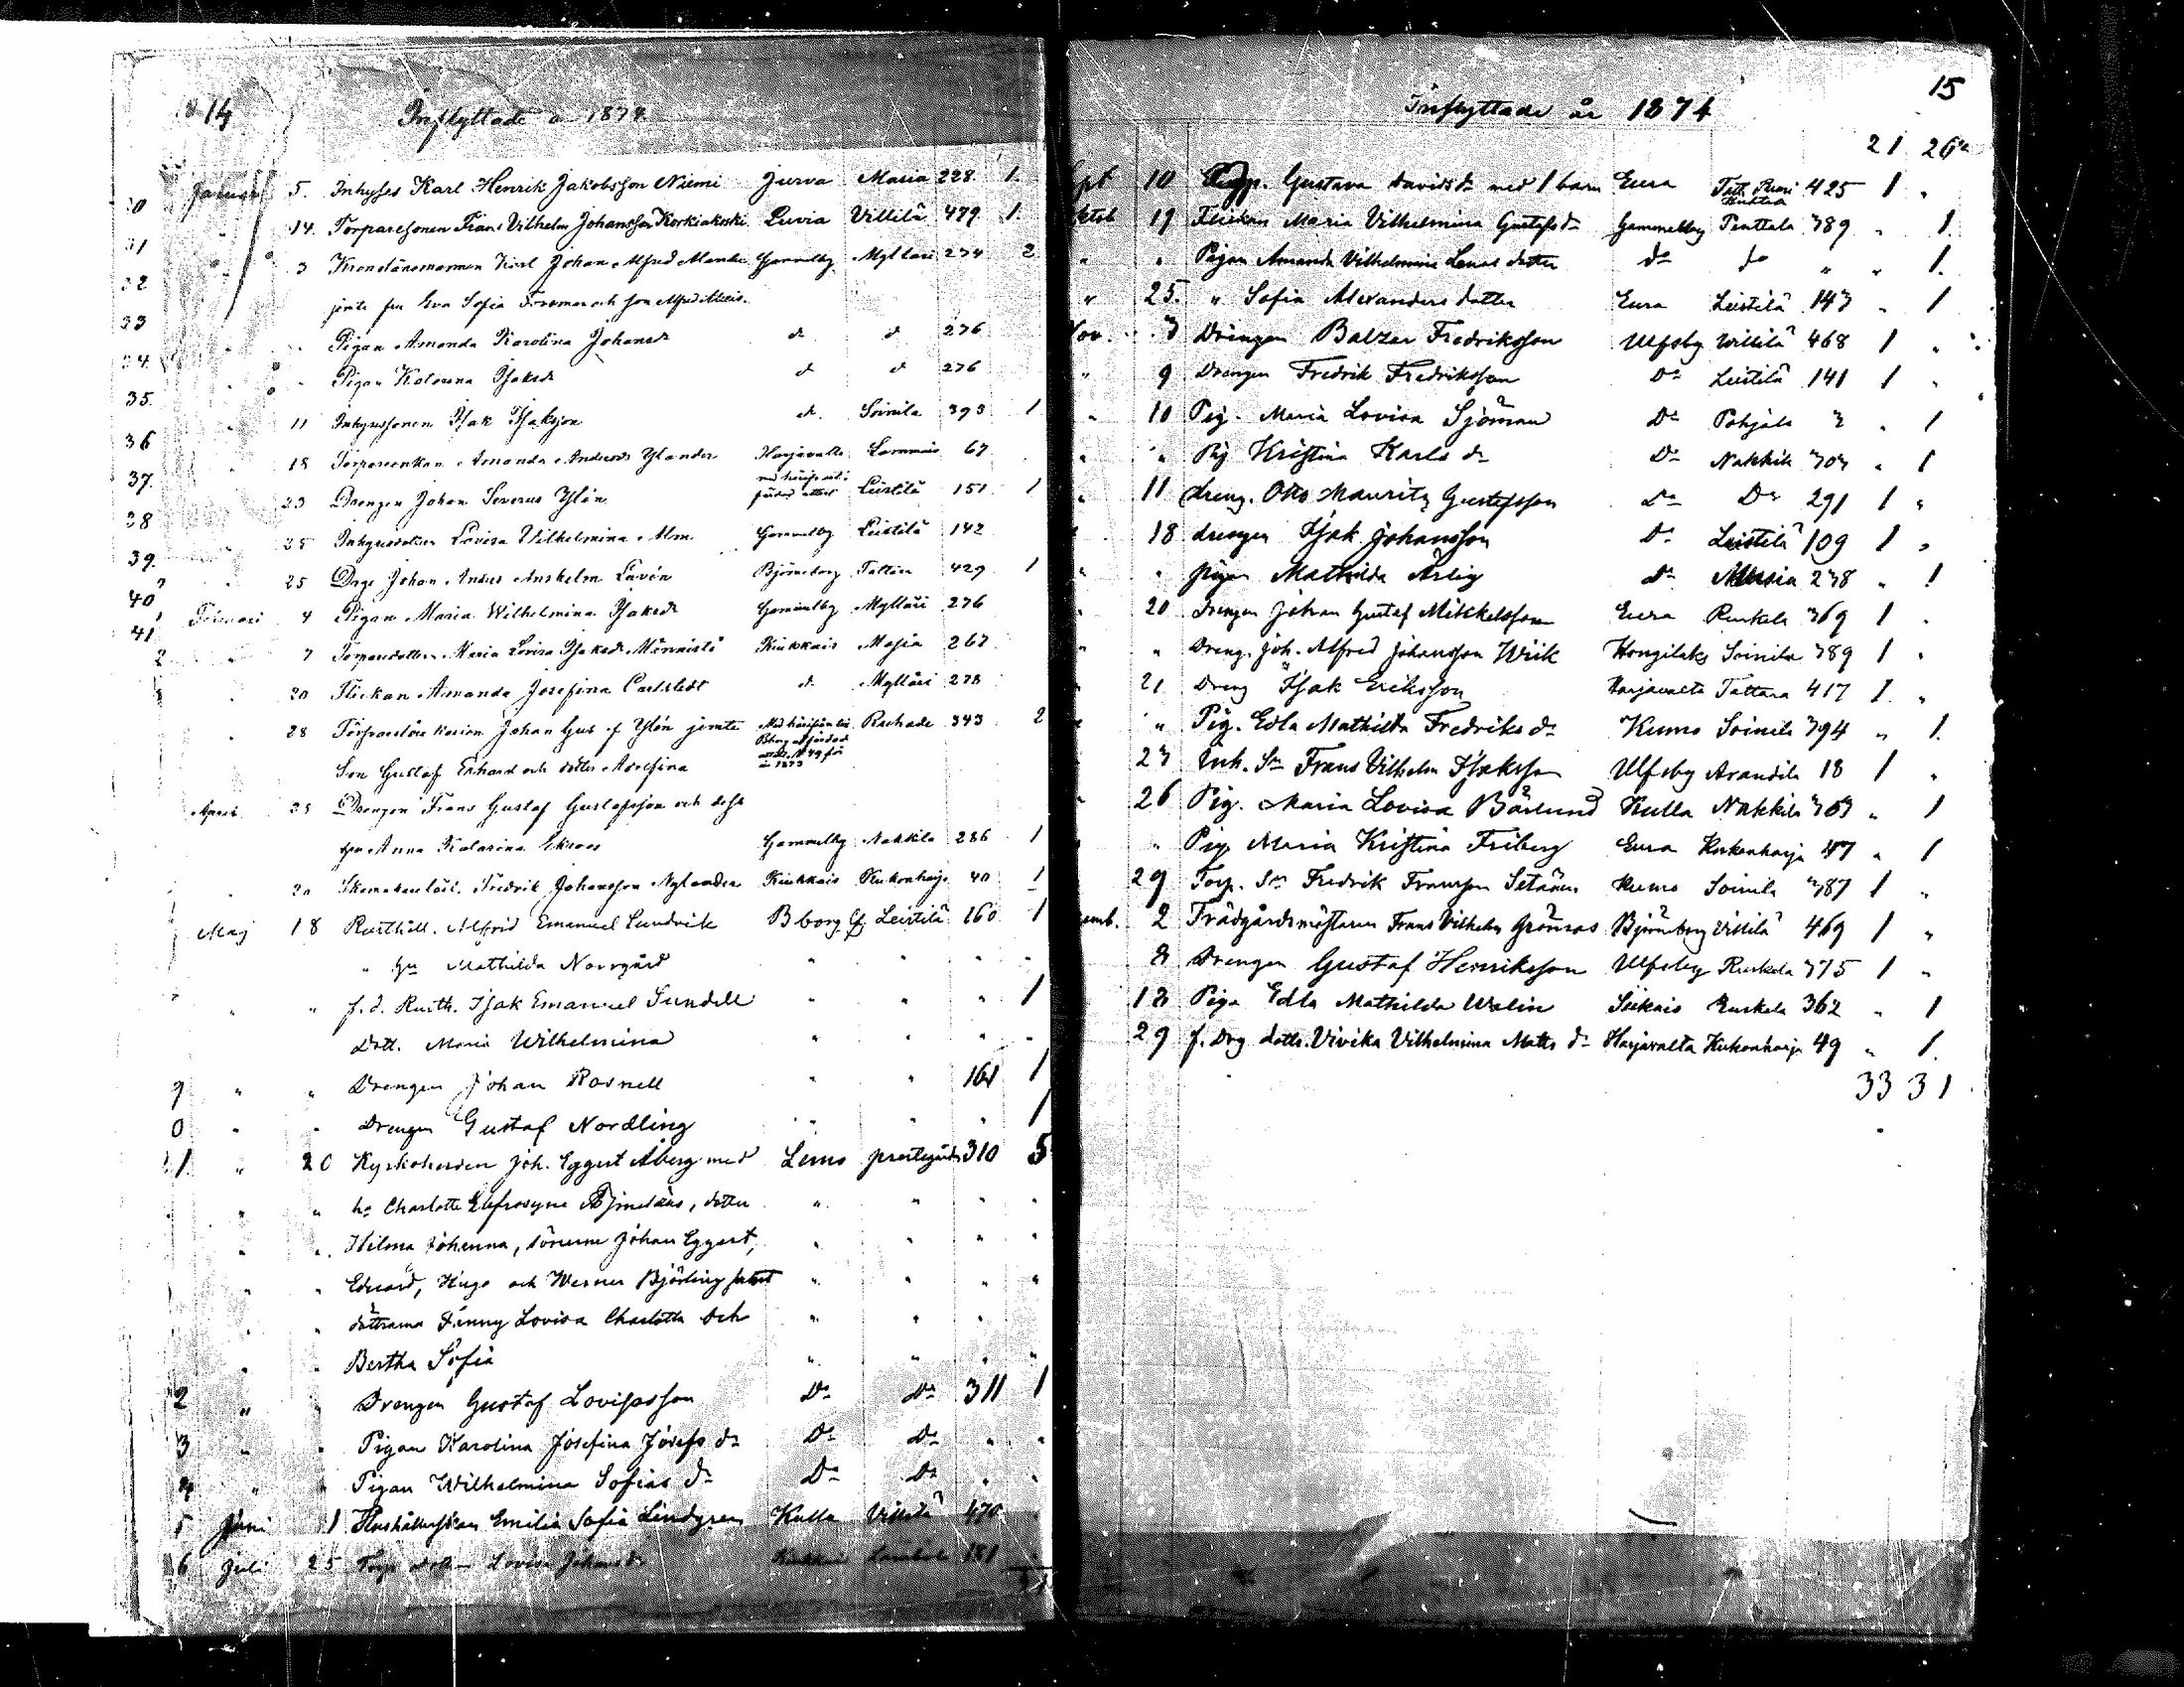 14
Inflyttade år 1874
Januari 5. Inhyses Karl Henrik Jakobsson Niemi Jurva Maria 228 1
31 14. Torparesonen Frans Vilhelm Johansson Korkiakoski Luvia Villilä 479 1
3 Johan Alfred Gammelby Mylläri 274 2
jemte fru Eva Sofia och son Alfred
Pigan Amanda Karolina Johansdr d d 276
34. Pigan Katarina Isaksdr d d 276
35. 11 Inhysessonen Isak Isaksson d. Soinila 393 1
36 18 Amanda Andersdr Ylander Harjavalta Lammais 67
37. 23 Drengen Johan Severus Ylén Leistilä 151 1
38 25 Lovisa Vilhelmina Alm Gammelby Leistilä 142
39. 25 Drge Johan Anders Anshelm Lavén Björneborg Tattara 429 1
40 Februari 4 Pigan Maria Wilhelmina Isaksdr Gammelby Mylläri 276
41 7 Torparedottern Maria Lovisa Isaksdr Männistö Kiukkais Masia 267
20 Flickan Amanda Josefina Carlstedt d. Mylläri 278
28 Johan Gustaf Ylén jemte Ruskala 343 2
Son Gustaf Erhard och dotter Adolfina
April 25 Drengen Frans Gustaf Gustafsson och dess
hu Anna Katarina Ekroos Gammelby Nakkila 286 1
20 Fredrik Johansson Nylander Kiukkais Kukonharja 40 1
Maj 18 Rusthåll. Alfrid Emanuel Lundvik B borg Leistilä 160 1
" hu Mathilda Norrgård " " " "
" " f. d. Rusth. Isak Emanuel Sundell " " " 1
Dott. Maria Wilhelmina " " " "
9 " " Drengen Johan Rosnell " " 161 1
0 " " Drengen Gustaf Nordling " " " 1
1. " 20 Kyrkoherden Joh. Eggert Åberg med Lemo prestegård 310 5
" " Charlotte Eufrosyne , dotter " " " "
" " Hilma Johanna, sönerne Johan Eggert, " " " "
" " Edvard, Hugo och Werner Björling samt " " " "
" " döttrarna Fanny Lovisa Charlotta och " " "
" " Bertha Sofia " " " "
2 " " Drengen Gustaf Lovisasson Do Do 311 1
3 " " Pigan Karolina Josefina Josefs dr Do Do " "
4 " " Pigan Wilhelmina Sofias dr Do Do " "
5 Juni 1 Hushållerskan Emilia Sofia Lindgren Kulla Villilä 470
6 Juli 25 Torp. dott. Lovisa Johansdr 181
15
Inflyttade år 1874
21 26
10 Gustava Davids dr med 1 barn Eura 425 1 "
19 Flickan Maria Vilhelmina Gustafs dr Gammelby Penttala 389 " 1
" " Pigan Amanda Vilhelmina Lenas dotter do do " " 1.
" 25. " Sofia Alexanders dotter Eura Leistilä 143 " 1
Nov. 3 Drängen Balzar Fredriksson Ulfsby Willilä 468 1 "
" 9 Drängen Fredrik Fredriksson Do Leistilä 141 1 "
" 10 Pig. Maria Lovisa Sjöman Do Pohjala 3 " 1
" " Pig Kristina Karls dr Do Nakkila 303 " 1
" 11 dreng. Otto Mauritz Gustafsson Do Do 291 1 "
18 drengen Isak Johansson Do Leistilä 109 1 "
" " pigan Mathilda Ärlig Do Masia 238 " 1
20 Drengen Johan Gustaf Mikkelsson Eura Ruskala 369 1 "
" " Dreng. Joh. Alfred Johansson Wiik Hongilaks Soinila 389 1 "
21 Dreng Isak Eriksson Harjavalta Tattara 417 1 "
" Pig. Edla Mathilda Fredriks dr Kumo Soinila 394 " 1
23 Inh. Sn Frans Vilhelm Isaksson Ulfsby Arandila 18 1 "
26 Pig. Maria Lovisa Bärlund Kulla Nakkila 303 " 1
" Pig Maria Kristina Friberg Eura Kukonharja 47 " 1
29 Torp. Sn Fredrik Fransson Setänen Kumo Soinila 387 1 "
emb. 2 Trädgårdsmästaren Frans Vilhelm Grönroos Björneborg Villilä 469 1 "
8 Drengen Gustaf Henriksson Ulfsby Ruskala 375 1 "
18 Piga Edla Mathilda Walin Siikais Ruskala 362 " 1
29 f. Drg dottr. Vivika Vilhelmina Matts dr Harjavalta Kukonharja 49 " 1.
33 31